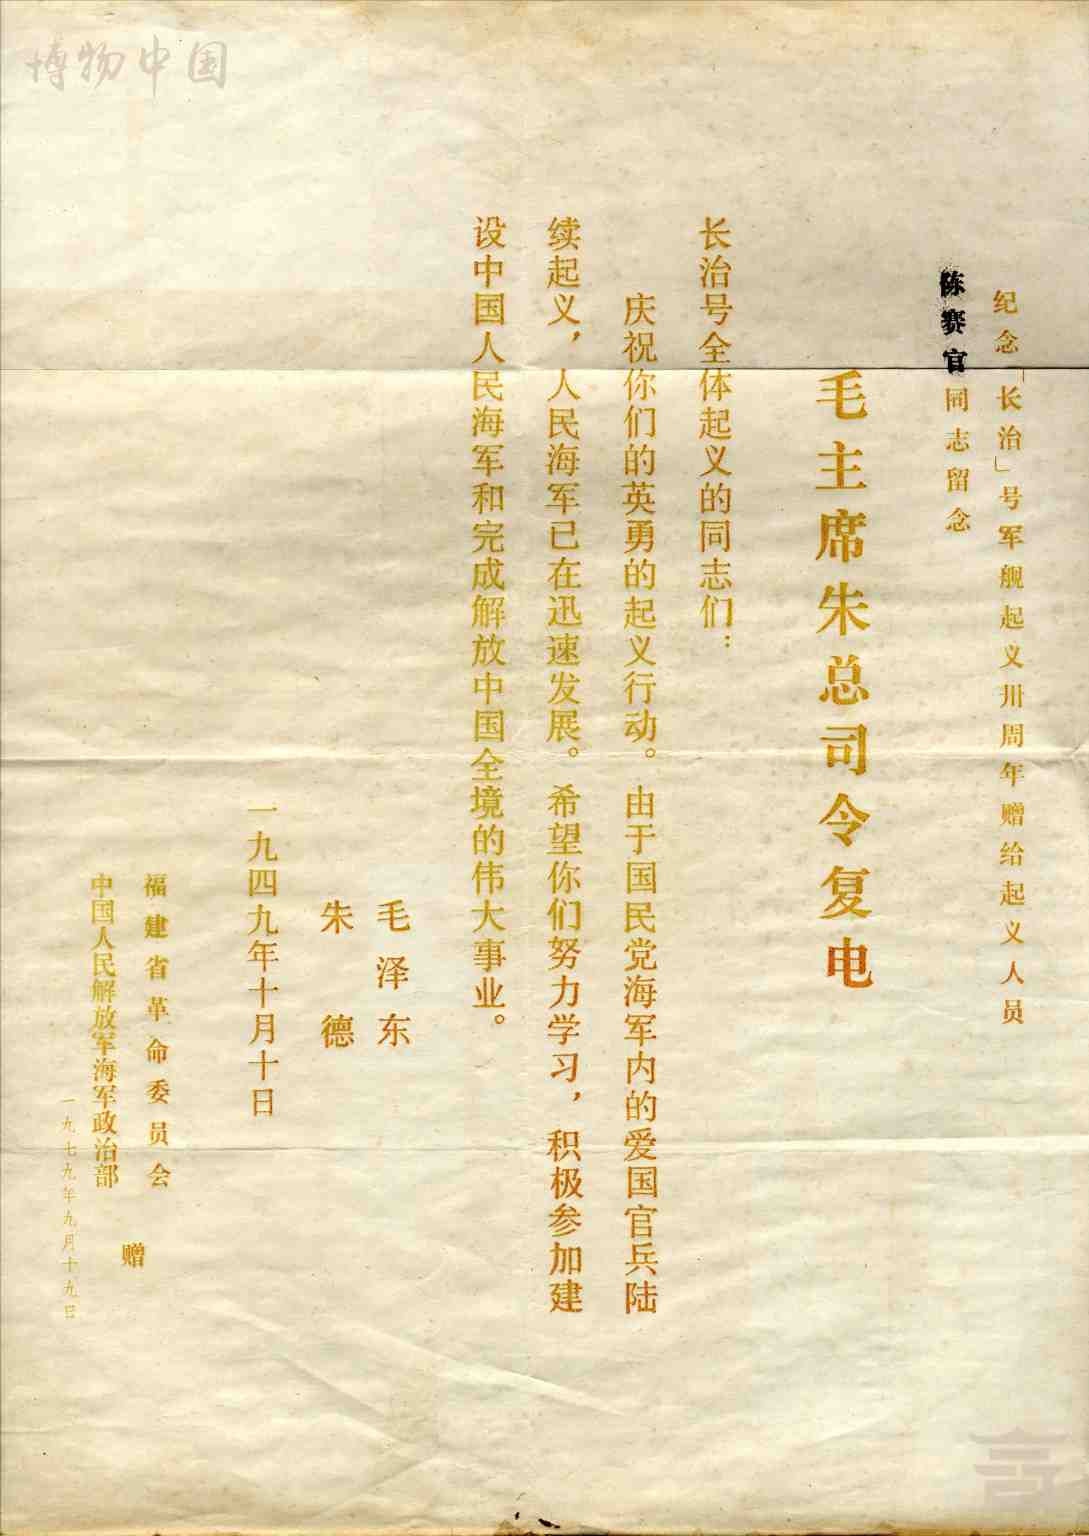 博物中国
纪念「长治」号军舰起义卅周年赠给起义人员
陈赛官同志留念
毛主席朱总司令复电
长治号全体起义的同志们：
庆祝你们的英勇的起义行动。由于国民党海军内的爱国官兵陆
续起义，人民海军已在迅速发展。希望你们努力学习，积极参加建
设中国人民海军和完成解放中国全境的伟大事业。
毛泽东
朱德
一九四九年十月十日
福建省革命委员会
中国人民解放军海军政治部
赠
一九七九年九月十九日